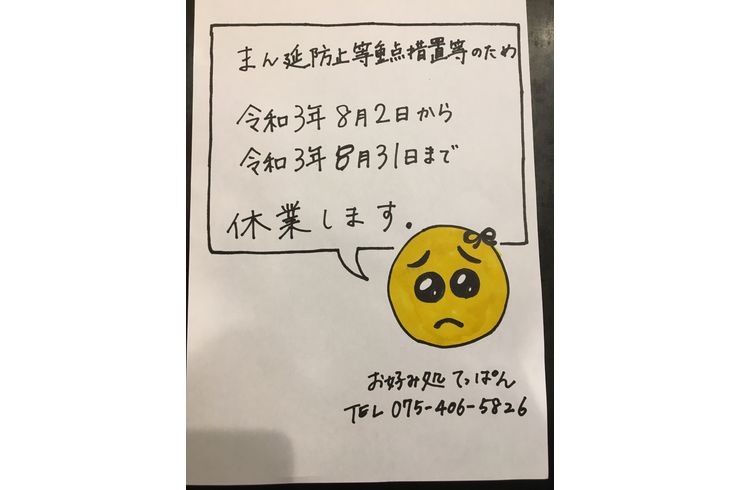 まん延防止等重点措置等のため
令和3年8月2日から
令和3年8月31日まで
休業します.
お好み処 てっぱん
TEL 075-406-5826